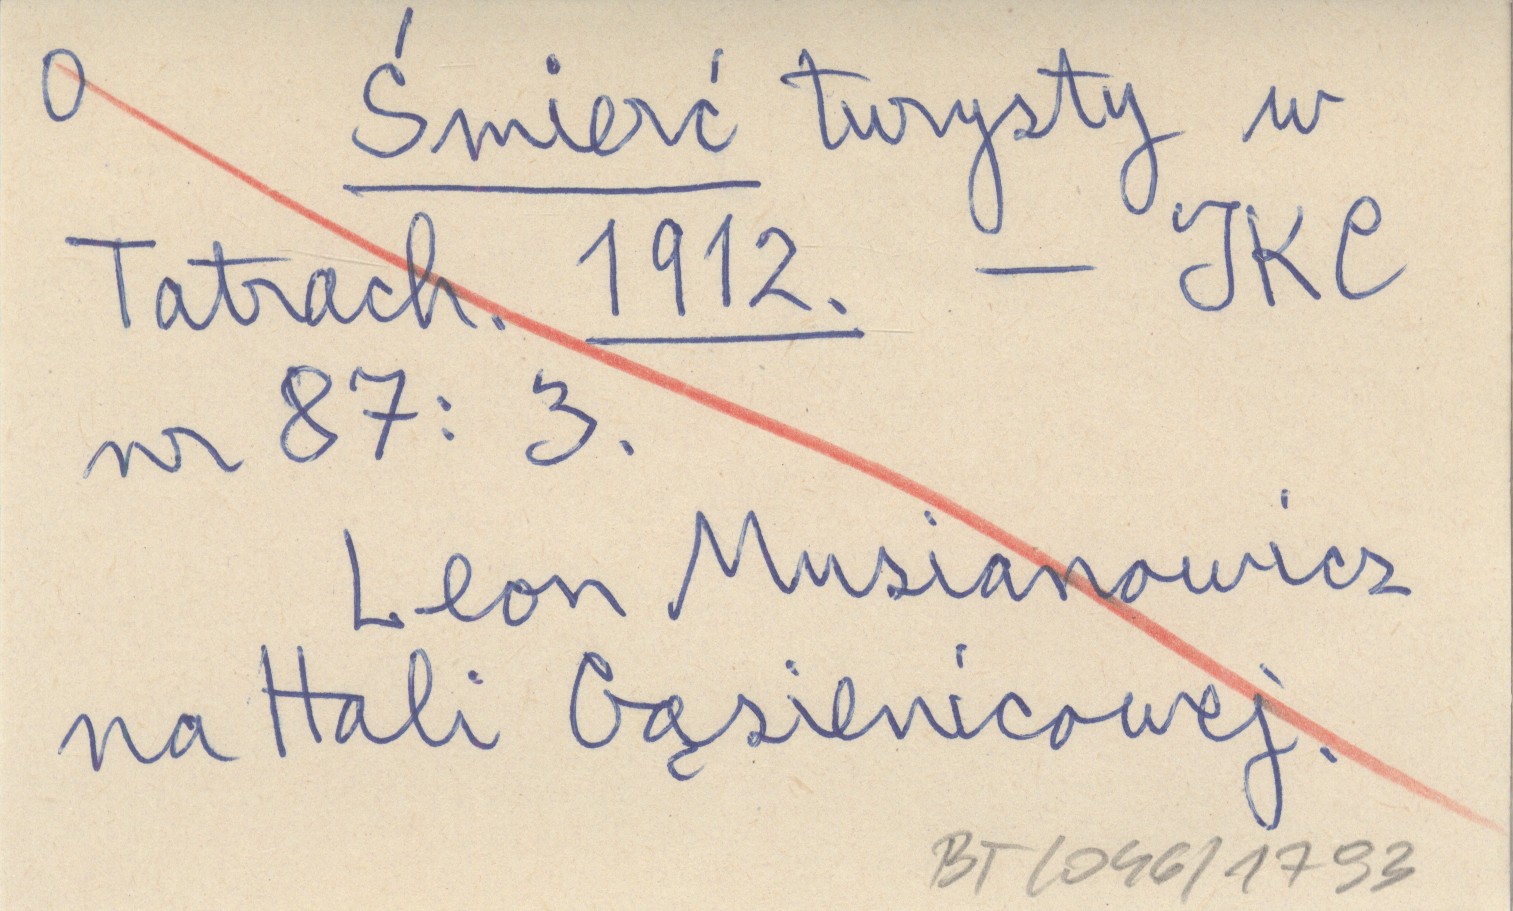 0 Śmierć turysty w
Tatrach. 1912. — JKC
nr 87: 3.
Leon Musianowicz
na Hali Gąsienicowej.
BT/046/1793